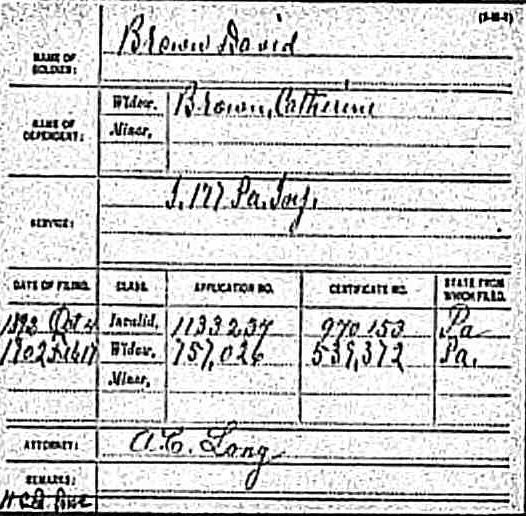 Brown David
NAME OF SOLDIER:
NAME OF DEPENDENT:
Widow, Brown, Catherine
Minor,
SERVICE: I. 177 Pa. Inf.
DATE OF FILING. CLASS. APPLICATION NO. CERTIFICATE NO. STATE FROM WHICH FILED.
1892 Oct 4 Invalid, 1133237 970153 Pa
1902 Widow, 757,026 539,372 Pa.
Minor,
ATTORNEY: A. C. Long
REMARKS: